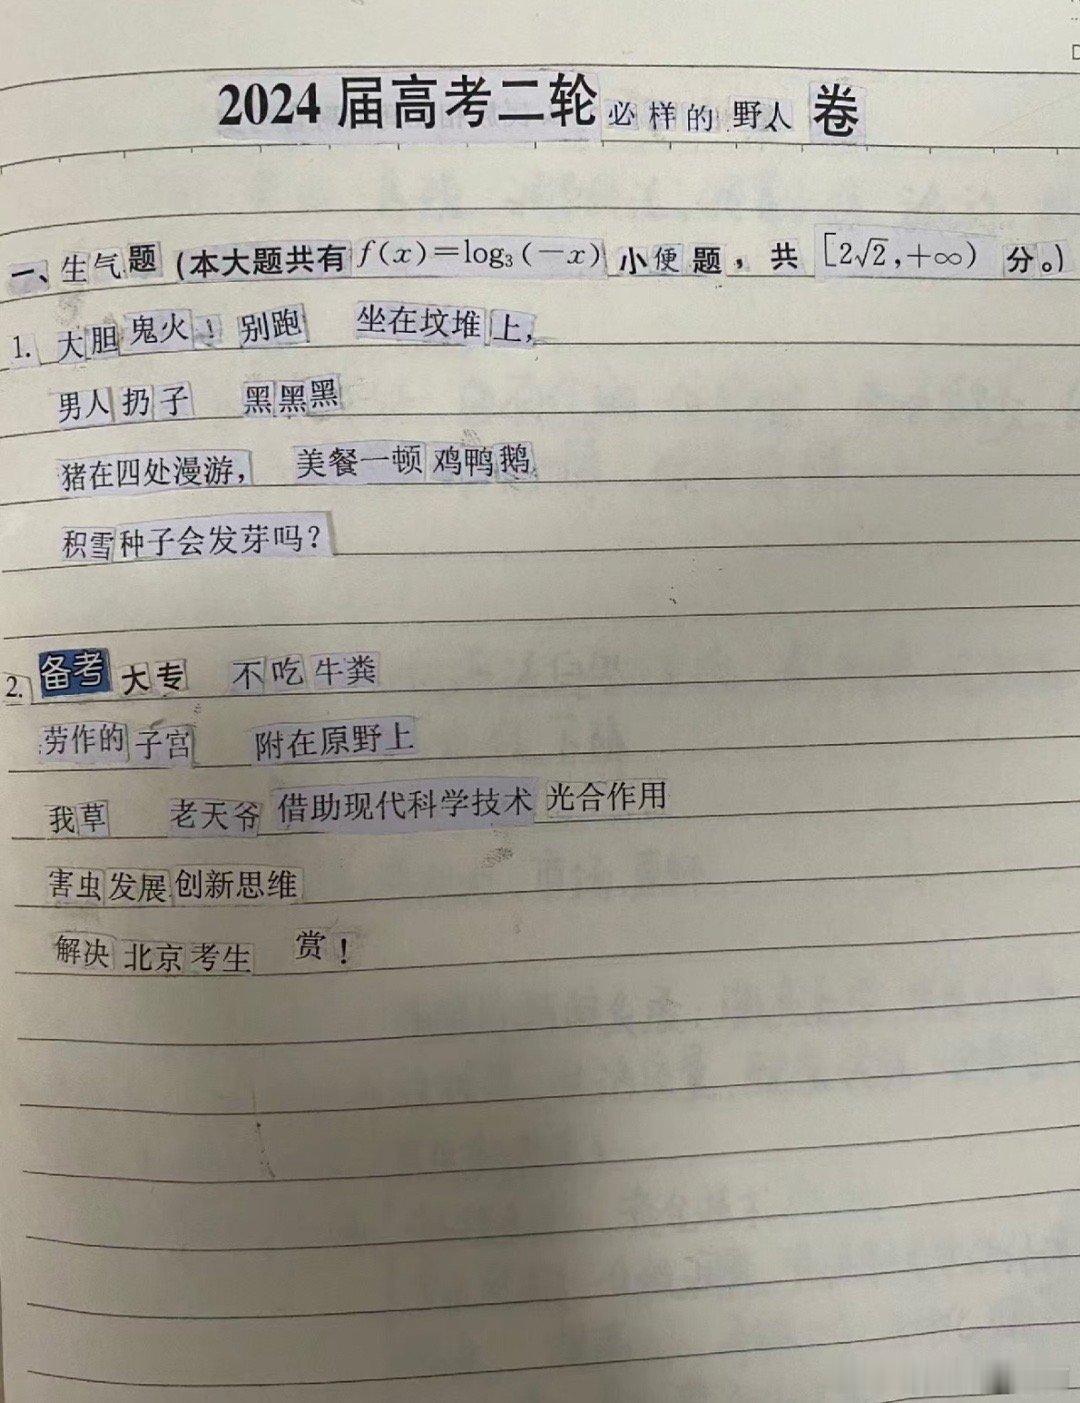 2024届高考二轮必样的野人卷
一、生气题(本大题共有f(x)=log₃(-x)小便题，共[2√2,+∞)分。)
1. 大胆鬼火！别跑 坐在坟堆上，
男人扔子 黑黑黑
猪在四处漫游， 美餐一顿鸡鸭鹅
积雪种子会发芽吗？
2. 备考大专 不吃牛粪
劳作的子宫 附在原野上
我草 老天爷借助现代科学技术光合作用
害虫发展创新思维
解决北京考生 赏！